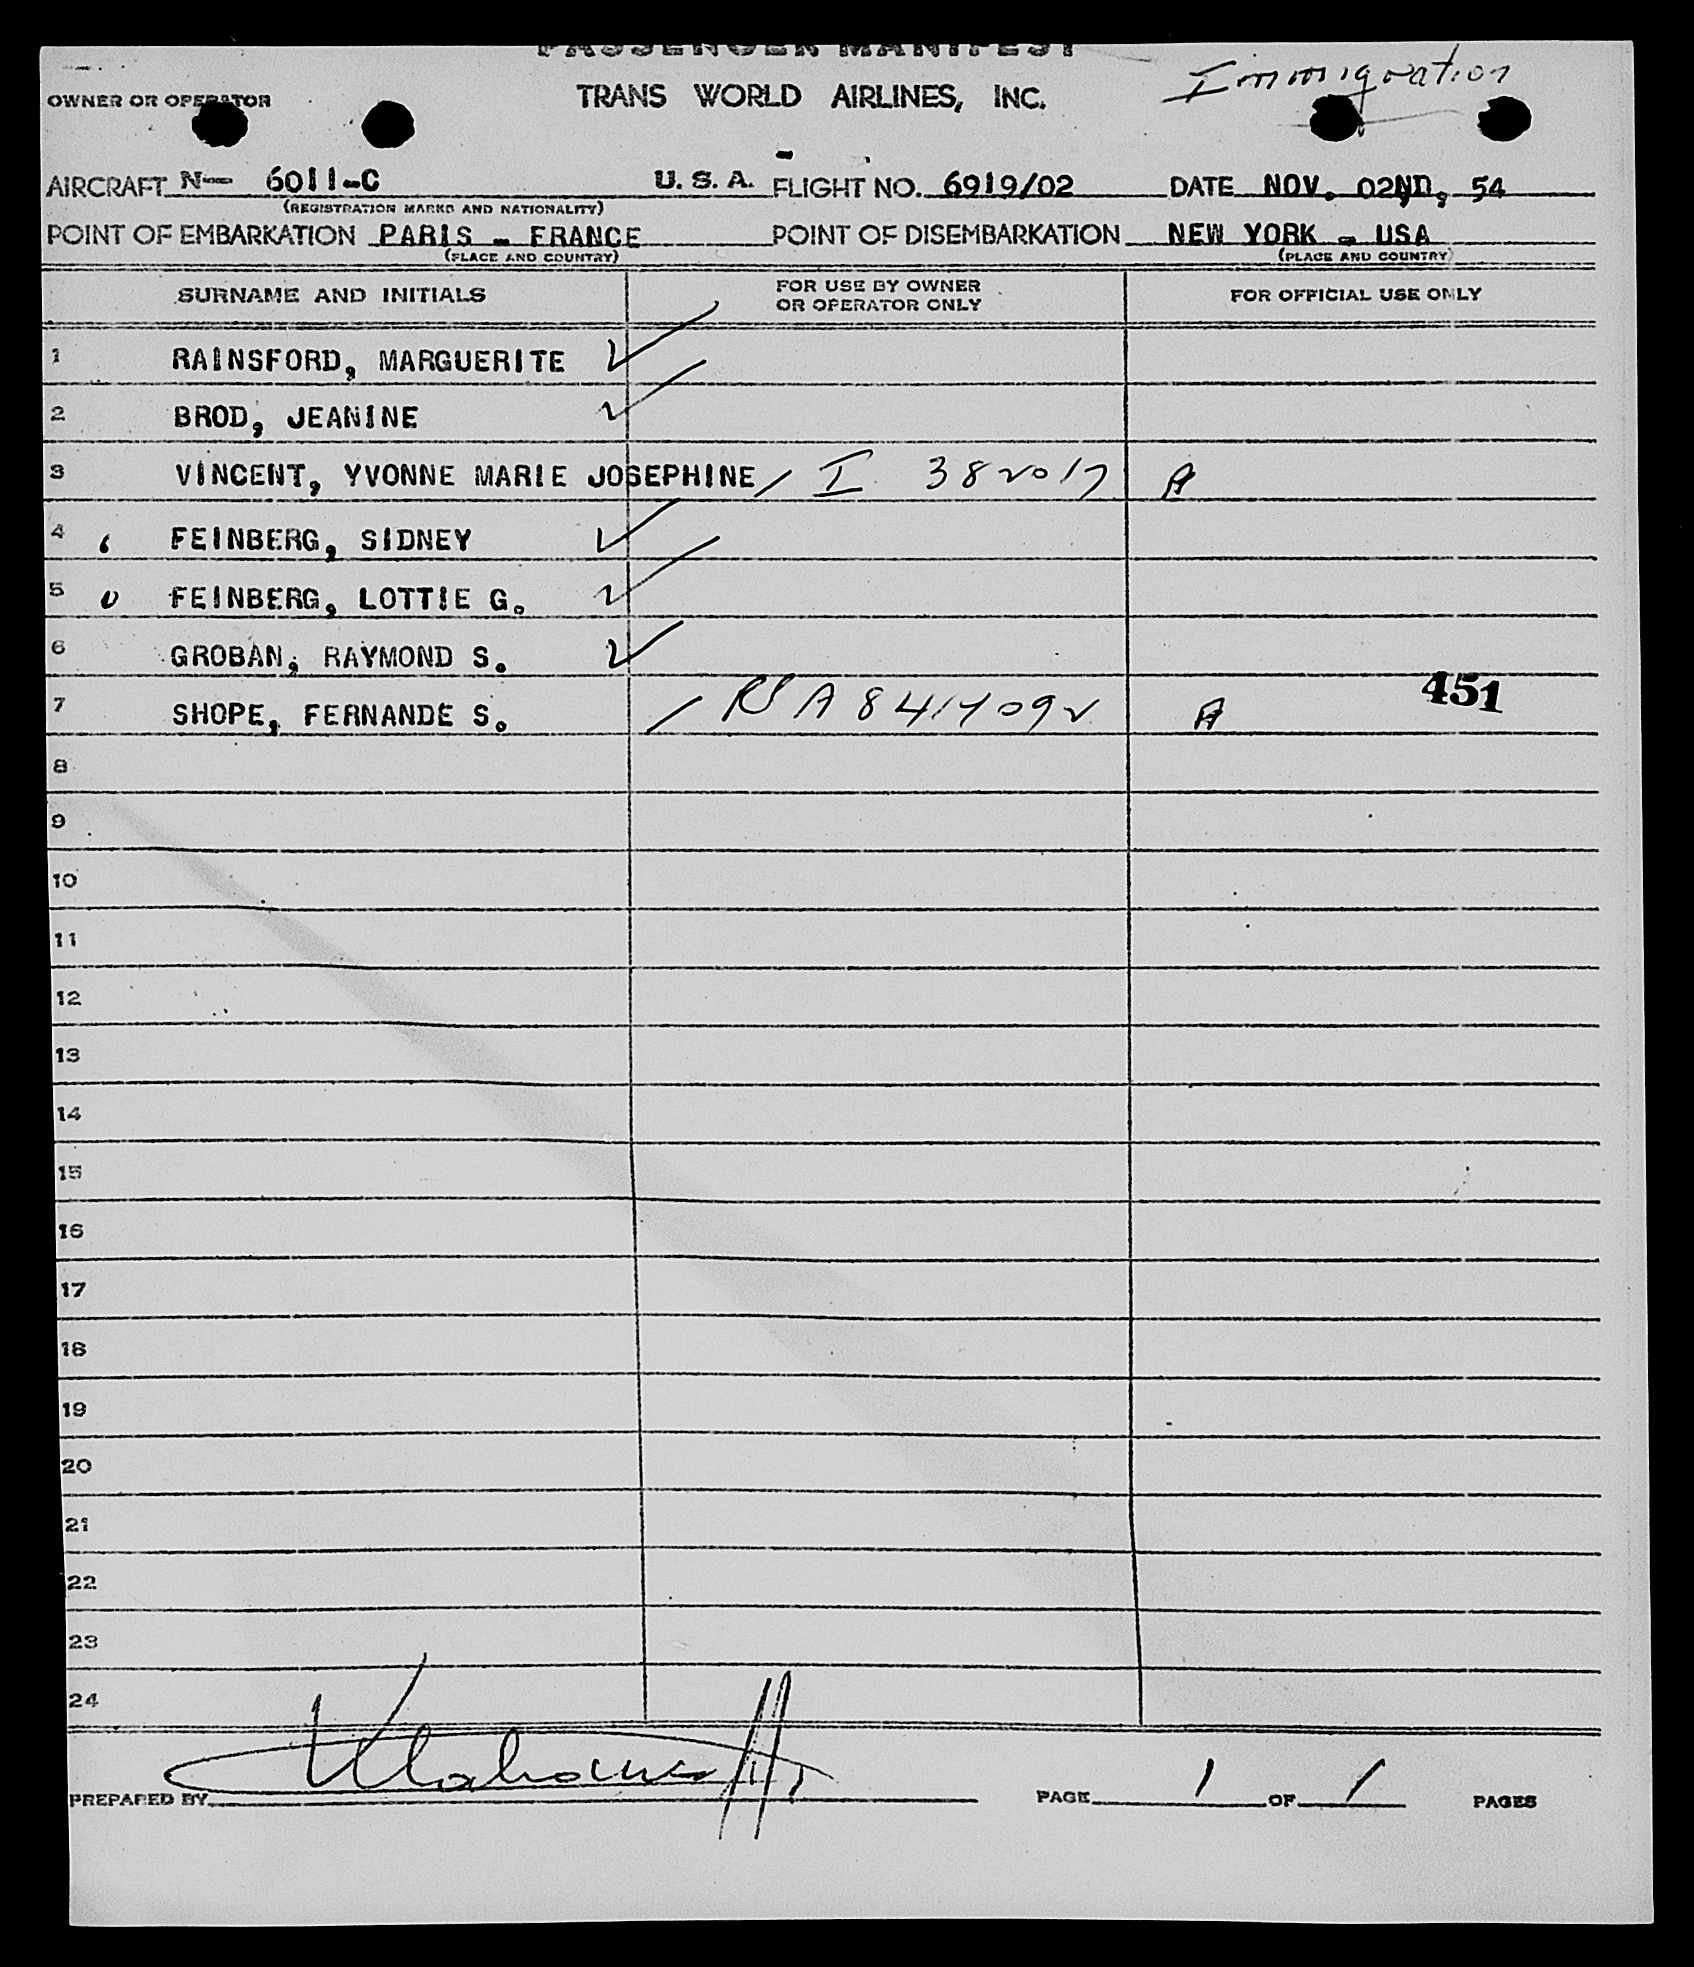 PASSENGER MANIFEST
Immigration
OWNER OR OPERATOR TRANS WORLD AIRLINES, INC.
AIRCRAFT N— 6011-C U. S. A. FLIGHT NO. 6919/02 DATE NOV. 02ND, 54
(REGISTRATION MARKS AND NATIONALITY)
POINT OF EMBARKATION PARIS - FRANCE POINT OF DISEMBARKATION NEW YORK - USA
(PLACE AND COUNTRY) (PLACE AND COUNTRY)
SURNAME AND INITIALS FOR USE BY OWNER OR OPERATOR ONLY FOR OFFICIAL USE ONLY
1 RAINSFORD, MARGUERITE
2 BROD, JEANINE
3 VINCENT, YVONNE MARIE JOSEPHINE I 382017 A
4 FEINBERG, SIDNEY
5 FEINBERG, LOTTIE G.
6 GROBAN, RAYMOND S.
7 SHOPE, FERNANDE S. A 451
8
9
10
11
12
13
14
15
16
17
18
19
20
21
22
23
24
PREPARED BY PAGE 1 OF 1 PAGES